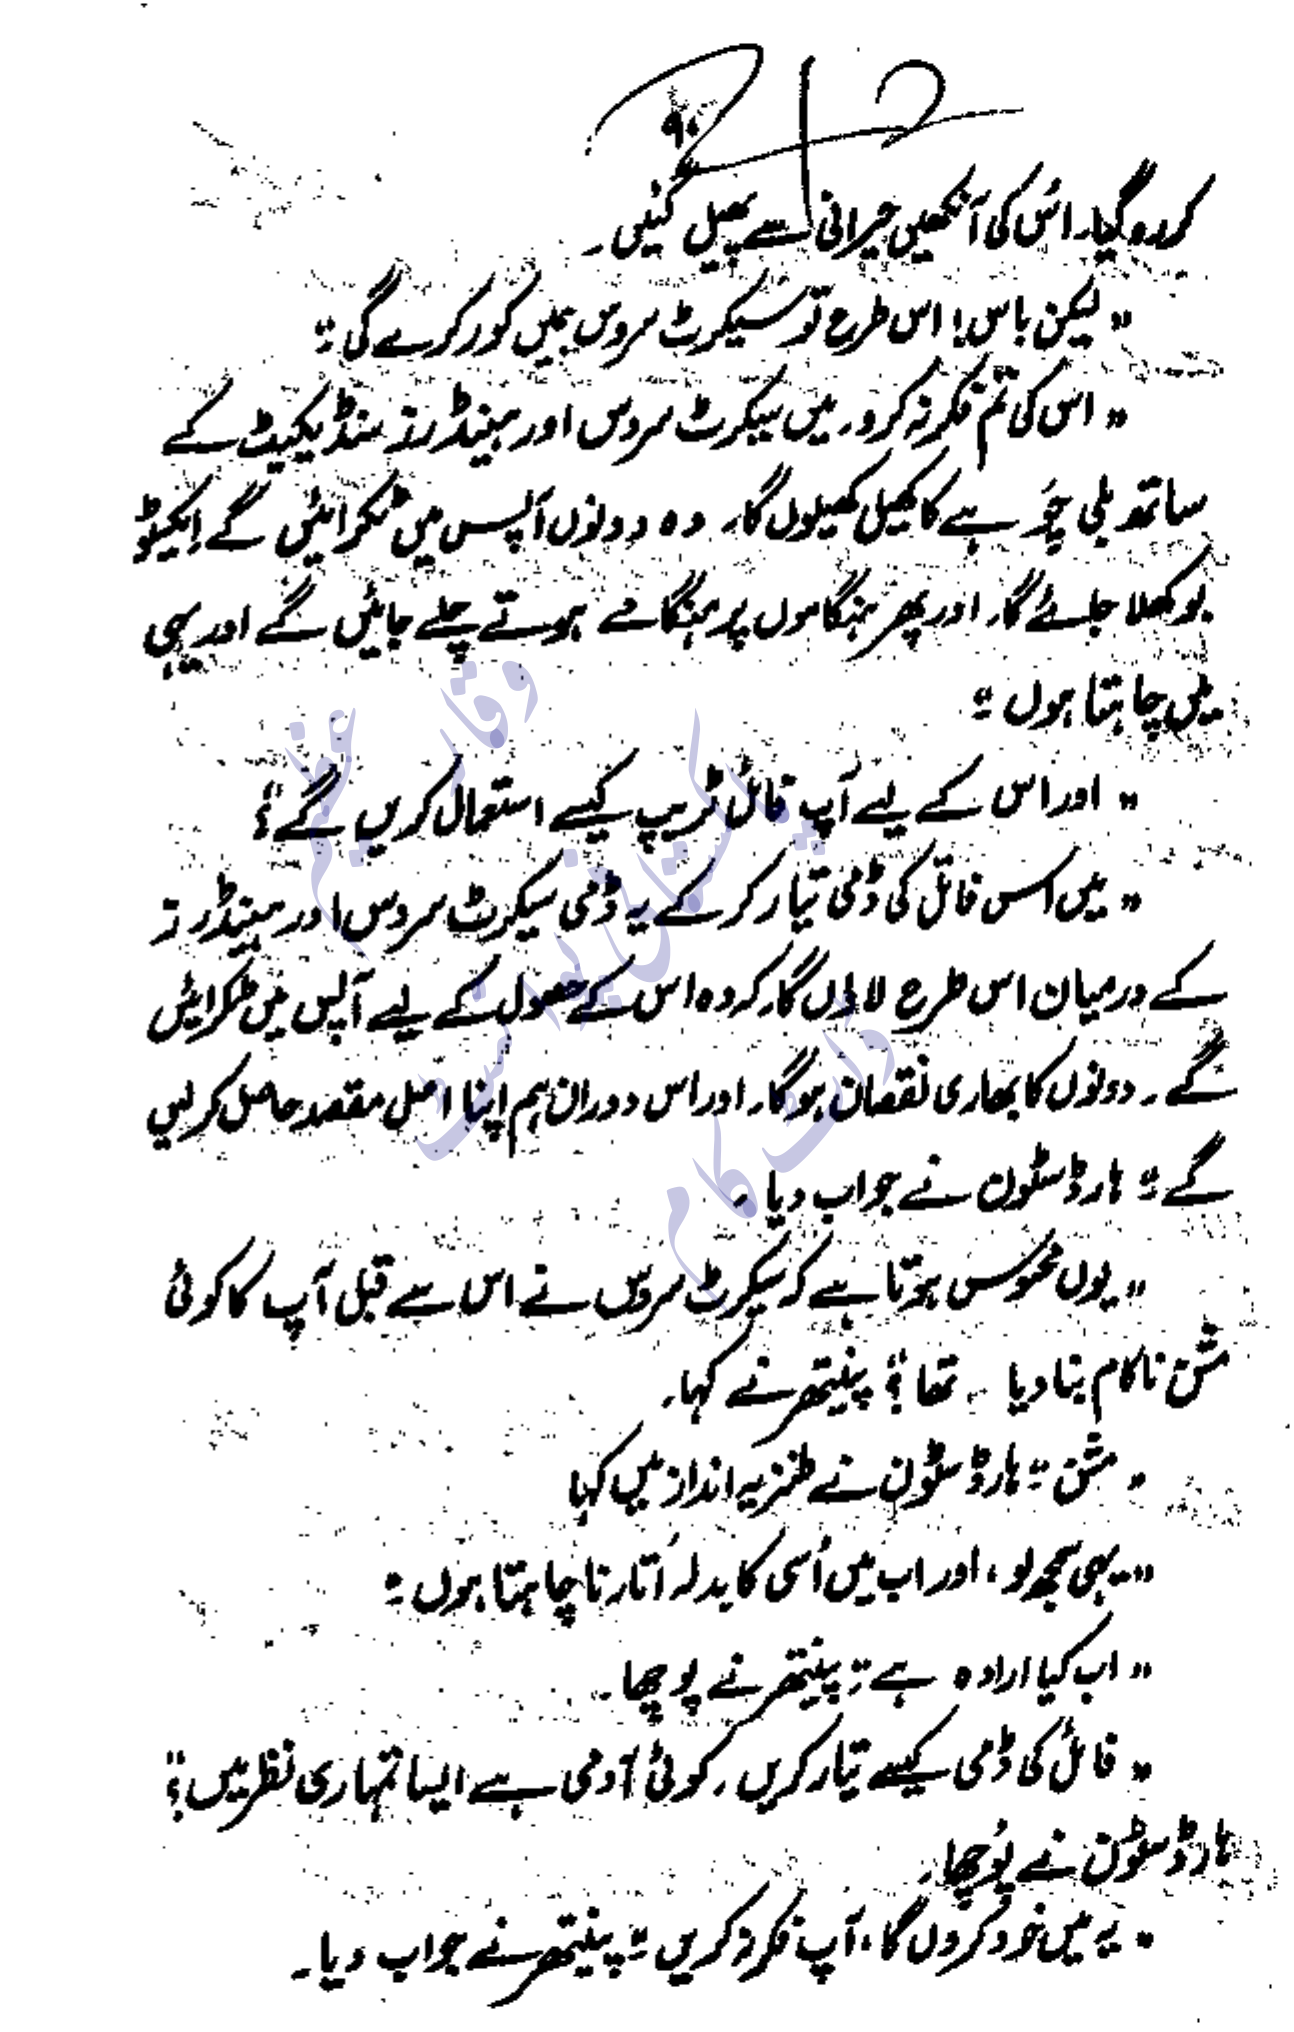 ۹۰
کر رہ گیا۔ اُس کی آنکھیں حیرانی سے پھیل گئیں۔
"لیکن باس! اس طرح تو سیکرٹ سروس ہمیں کور کرے گی۔"
"اس کی تم فکر نہ کرو۔ میں سیکرٹ سروس اور مینڈرز سنڈیکیٹ کے
ساتھ بلی چُوہے کا کھیل کھیلوں گا۔ وہ دونوں آپس میں ٹکرائیں گے ایکٹو
بوکھلا جائے گا۔ اور پھر ہنگاموں پر ہنگامے ہوتے چلے جائیں گے اور یہی
میں چاہتا ہوں۔"
"اور اس کے لیے آپ فائل ٹریپ کیسے استعمال کریں گے؟"
"میں اس فائل کی ڈمی تیار کر کے یہ ڈمی سیکرٹ سروس اور مینڈرز
کے درمیان اس طرح لاؤں گا کہ وہ اس کے حصول کے لیے آپس میں ٹکرائیں
گے۔ دونوں کا بھاری نقصان ہو گا۔ اور اس دوران ہم اپنا اصل مقصد حاصل کر لیں
گے۔" ہارڈ سٹون نے جواب دیا۔
"یوں محسوس ہوتا ہے کہ سیکرٹ سروس نے اس سے قبل آپ کا کوئی
مشن ناکام بنا دیا تھا؟" پینتھر نے کہا۔
"مشن۔" ہارڈ سٹون نے طنزیہ انداز میں کہا
"یہی سمجھ لو، اور اب میں اُسی کا بدلہ اُتارنا چاہتا ہوں۔"
"اب کیا ارادہ ہے۔" پینتھر نے پوچھا۔
"فائل کی ڈمی کیسے تیار کریں۔ کوئی آدمی ہے ایسا تمہاری نظر میں؟"
ہارڈ سٹون نے پُوچھا۔
"یہ میں خود کر دوں گا، آپ فکر نہ کریں۔" پینتھر نے جواب دیا۔
وقار عظیم
پاکستانی پوائنٹ
ڈاٹ کام